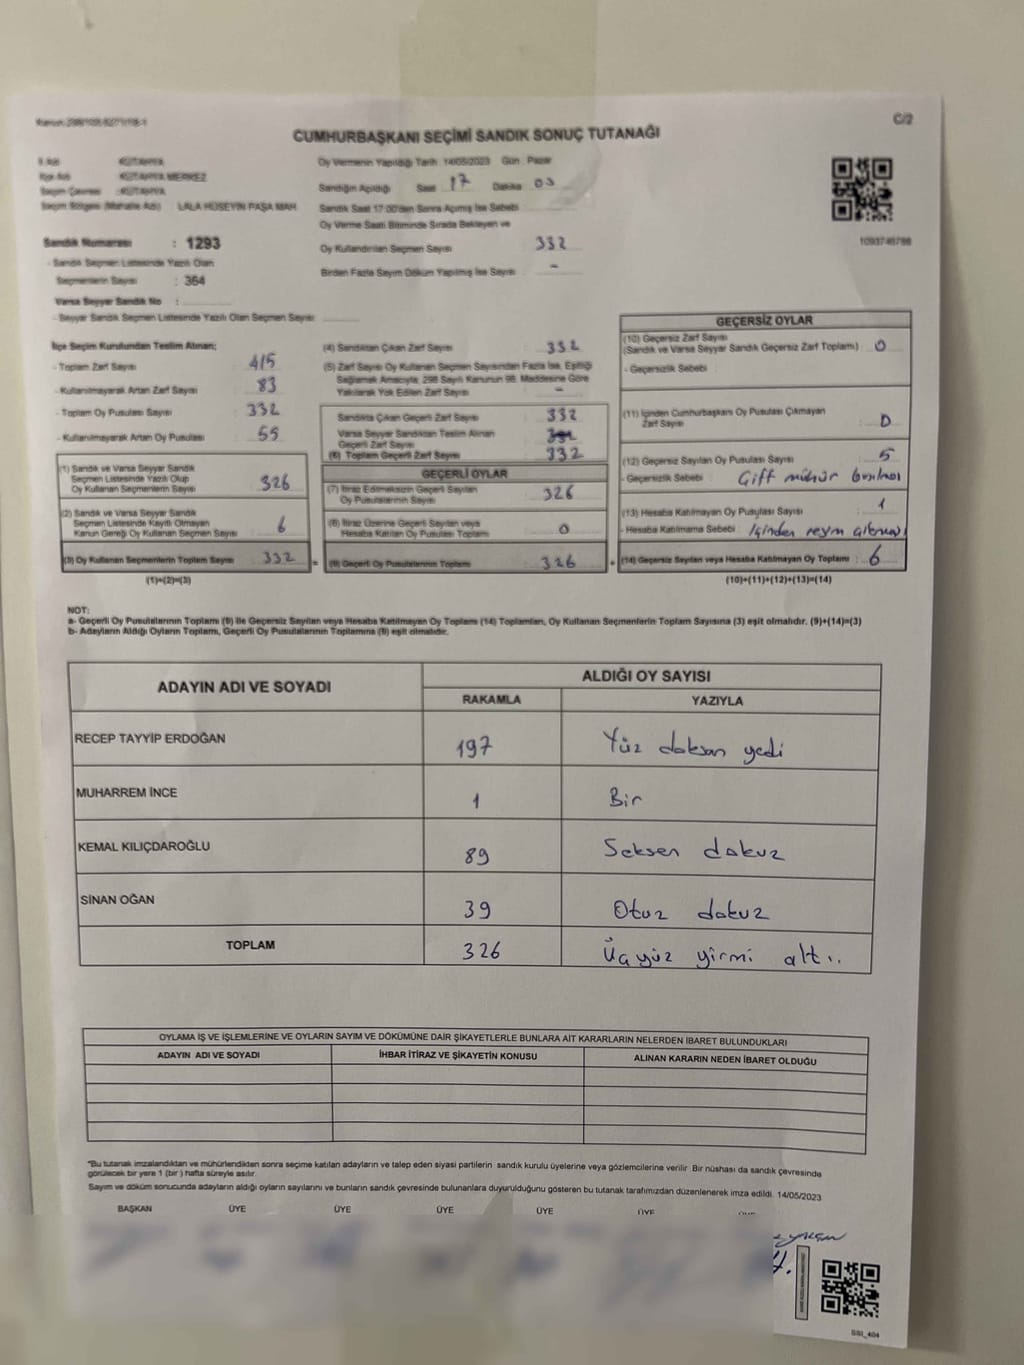 C/2
CUMHURBAŞKANI SEÇİMİ SANDIK SONUÇ TUTANAĞI
İl Adı KÜTAHYA
İlçe Adı KÜTAHYA MERKEZ
Seçim Çevresi : KÜTAHYA
Seçim Bölgesi (Mahalle Adı) LALA HÜSEYİN PAŞA MAH
Sandık Numarası : 1293
- Sandık Seçmen Listesinde Yazılı Olan
Seçmenlerin Sayısı : 364
Varsa Seyyar Sandık No :
- Seyyar Sandık Seçmen Listesinde Yazılı Olan Seçmen Sayısı:
Oy Vermenin Yapıldığı Tarih 14/05/2023 Gün Pazar
Sandığın Açıldığı Saat 17 Dakika 03
Sandık Saat 17:00'den Sonra Açılmış İse Sebebi
Oy Verme Saati Bitiminde Sırada Bekleyen ve
Oy Kullandırılan Seçmen Sayısı 332
Birden Fazla Sayım Döküm Yapılmış İse Sayısı -
1093746788
İlçe Seçim Kurulundan Teslim Alınan;
- Toplam Zarf Sayısı 415
- Kullanılmayarak Artan Zarf Sayısı 83
- Toplam Oy Pusulası Sayısı 332
- Kullanılmayarak Artan Oy Pusulası 55
(1) Sandık ve Varsa Seyyar Sandık
Seçmen Listesinde Yazılı Olup
Oy Kullanan Seçmenlerin Sayısı 326
(2) Sandık ve Varsa Seyyar Sandık
Seçmen Listesinde Kayıtlı Olmayan
Kanun Gereği Oy Kullanan Seçmen Sayısı 6
(3) Oy Kullanan Seçmenlerin Toplam Sayısı 332 =
(1)+(2)=(3)
(4) Sandıktan Çıkan Zarf Sayısı 332
(5) Zarf Sayısı Oy Kullanan Seçmen Sayısından Fazla İse, Eşitliği
Sağlamak Amacıyla, 298 Sayılı Kanunun 98. Maddesine Göre
Yakılarak Yok Edilen Zarf Sayısı -
Sandıkta Çıkan Geçerli Zarf Sayısı 332
Varsa Seyyar Sandıktan Teslim Alınan
Geçerli Zarf Sayısı
(6) Toplam Geçerli Zarf Sayısı 332
GEÇERLİ OYLAR
(7) İtiraz Edilmeksizin Geçerli Sayılan
Oy Pusulalarının Sayısı 326
(8) İtiraz Üzerine Geçerli Sayılan veya
Hesaba Katılan Oy Pusulası Toplamı 0
(9) Geçerli Oy Pusulalarının Toplamı 326 +
GEÇERSİZ OYLAR
(10) Geçersiz Zarf Sayısı
(Sandık ve Varsa Seyyar Sandık Geçersiz Zarf Toplamı) 0
- Geçersizlik Sebebi
(11) İçinden Cumhurbaşkanı Oy Pusulası Çıkmayan
Zarf Sayısı 0
(12) Geçersiz Sayılan Oy Pusulası Sayısı 5
- Geçersizlik Sebebi : Çift mühür
(13) Hesaba Katılmayan Oy Pusulası Sayısı 1
- Hesaba Katılmama Sebebi : İçinden
(14) Geçersiz Sayılan veya Hesaba Katılmayan Oy Toplamı : 6
(10)+(11)+(12)+(13)=(14)
NOT:
a- Geçerli Oy Pusulalarının Toplamı (9) ile Geçersiz Sayılan veya Hesaba Katılmayan Oy Toplamı (14) Toplamları, Oy Kullanan Seçmenlerin Toplam Sayısına (3) eşit olmalıdır. (9)+(14)=(3)
b- Adayların Aldığı Oyların Toplamı, Geçerli Oy Pusulalarının Toplamına (9) eşit olmalıdır.
ADAYIN ADI VE SOYADI
ALDIĞI OY SAYISI
RAKAMLA YAZIYLA
RECEP TAYYİP ERDOĞAN 197 Yüz doksan yedi
MUHARREM İNCE 1 Bir
KEMAL KILIÇDAROĞLU 89 Seksen dokuz
SİNAN OĞAN 39 Otuz dokuz
TOPLAM 326 Üçyüz yirmi altı..
OYLAMA İŞ VE İŞLEMLERİNE VE OYLARIN SAYIM VE DÖKÜMÜNE DAİR ŞİKAYETLERLE BUNLARA AİT KARARLARIN NELERDEN İBARET BULUNDUKLARI
ADAYIN ADI VE SOYADI İHBAR İTİRAZ VE ŞİKAYETİN KONUSU ALINAN KARARIN NEDEN İBARET OLDUĞU
"Bu tutanak imzalandıktan ve mühürlendikten sonra seçime katılan adayların ve talep eden siyasi partilerin sandık kurulu üyelerine veya gözlemcilerine verilir Bir nüshası da sandık çevresinde
görülecek bir yere 1 (bir ) hafta süreyle asılır.
Sayım ve döküm sonucunda adayların aldığı oyların sayılarını ve bunların sandık çevresinde bulunanlara duyurulduğunu gösteren bu tutanak tarafımızdan düzenlenerek imza edildi. 14/05/2023
BAŞKAN ÜYE ÜYE ÜYE ÜYE ÜYE
SSI_404